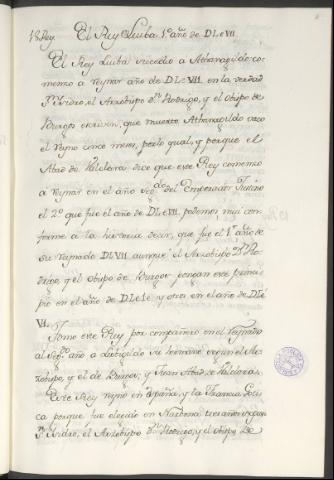 18 Rey. El Rey Liuba 1º año de DLxVII.
El Rey Liuba sucedio a Athanagildo co-
menzo a reynar año de DLxVII. en la verdad
Sn. Isidro, el Arzobispo Dn. Rodrigo, y el Obispo de
Burgos escriven, que muerto Athanagildo vaco
el Reyno cinco meses, por lo qual, y porque el
Abad de Valclara dice que este Rey comenzo
a reynar en el año segdo. del Emperador Justino
el 2º que fue el año de DLxVII, podemos muy con-
forme a la historia decir, que fue el 1º año de
su Reynado DLxVII aunque el Arzobispo Dn. Ro-
drigo, y el Obispo de Burgos pongan este princi-
pio en el año de DLxLx y otros en el año de DLx
VI.
Tomo este Rey por compañero en el Reynado
al segdo. año a Leovigildo su hermano segun el Ar-
zobispo, y el de Burgos, y Juan Abad de Valclara.
Este Rey reyno en España, y la Francia Goti-
ca porque fue elegido en Narbona tres años segun
Sn. Isidro, el Arzobispo Dn. Rodrigo, y el Obispo de